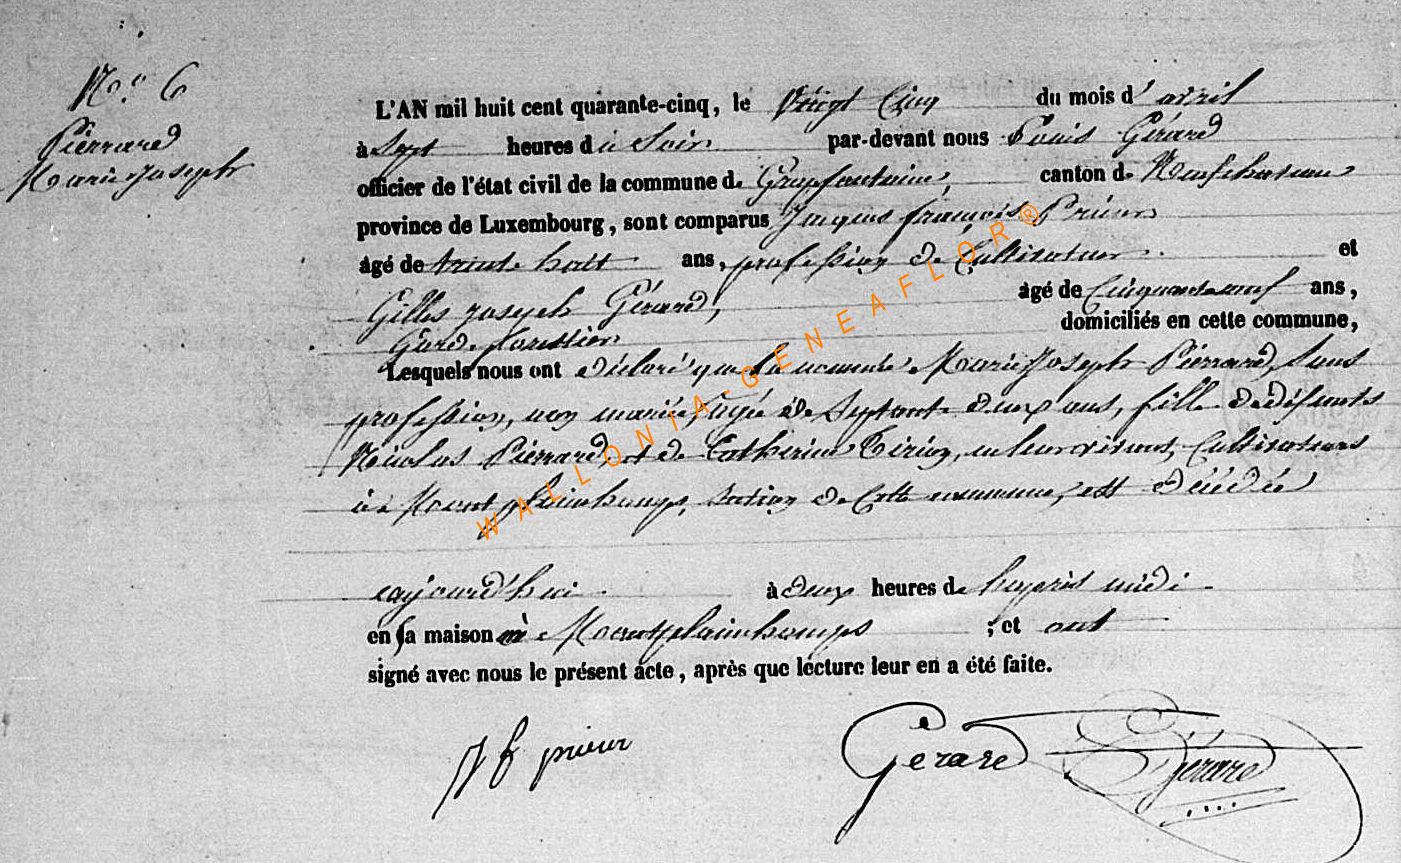 N.° 6
Pierrard
Marie Joseph
L'AN mil huit cent quarante-cinq, le Vingt Cinq du mois d'avril
à Sept heures du Soir par-devant nous Louis Gérard
officier de l'état civil de la commune de Grapfontaine, canton de Neufchateau
province de Luxembourg, sont comparus Jacques françois Prieur
âgé de trente huit ans, profession de Cultivateur et
Gilles joseph Gérard, âgé de Cinquante neuf ans,
Garde forestier domiciliés en cette commune,
Lesquels nous ont déclaré que la nommée Marie Joseph Pierrard, Sans
profession, non mariée, agée de Septante deux ans, fille de défunts
Nicolas Pierrard, et de Catherine en leur vivant, Cultivateurs
à Montplainchamps, Section de Cette commune, est décédée
aujourd'hui à deux heures de l'après midi
en sa maison à Montplainchamps ; et ont
signé avec nous le présent acte, après que lecture leur en a été faite.
J f prieur Gérard Gérard
WALLONIA-GENEAFLOR®